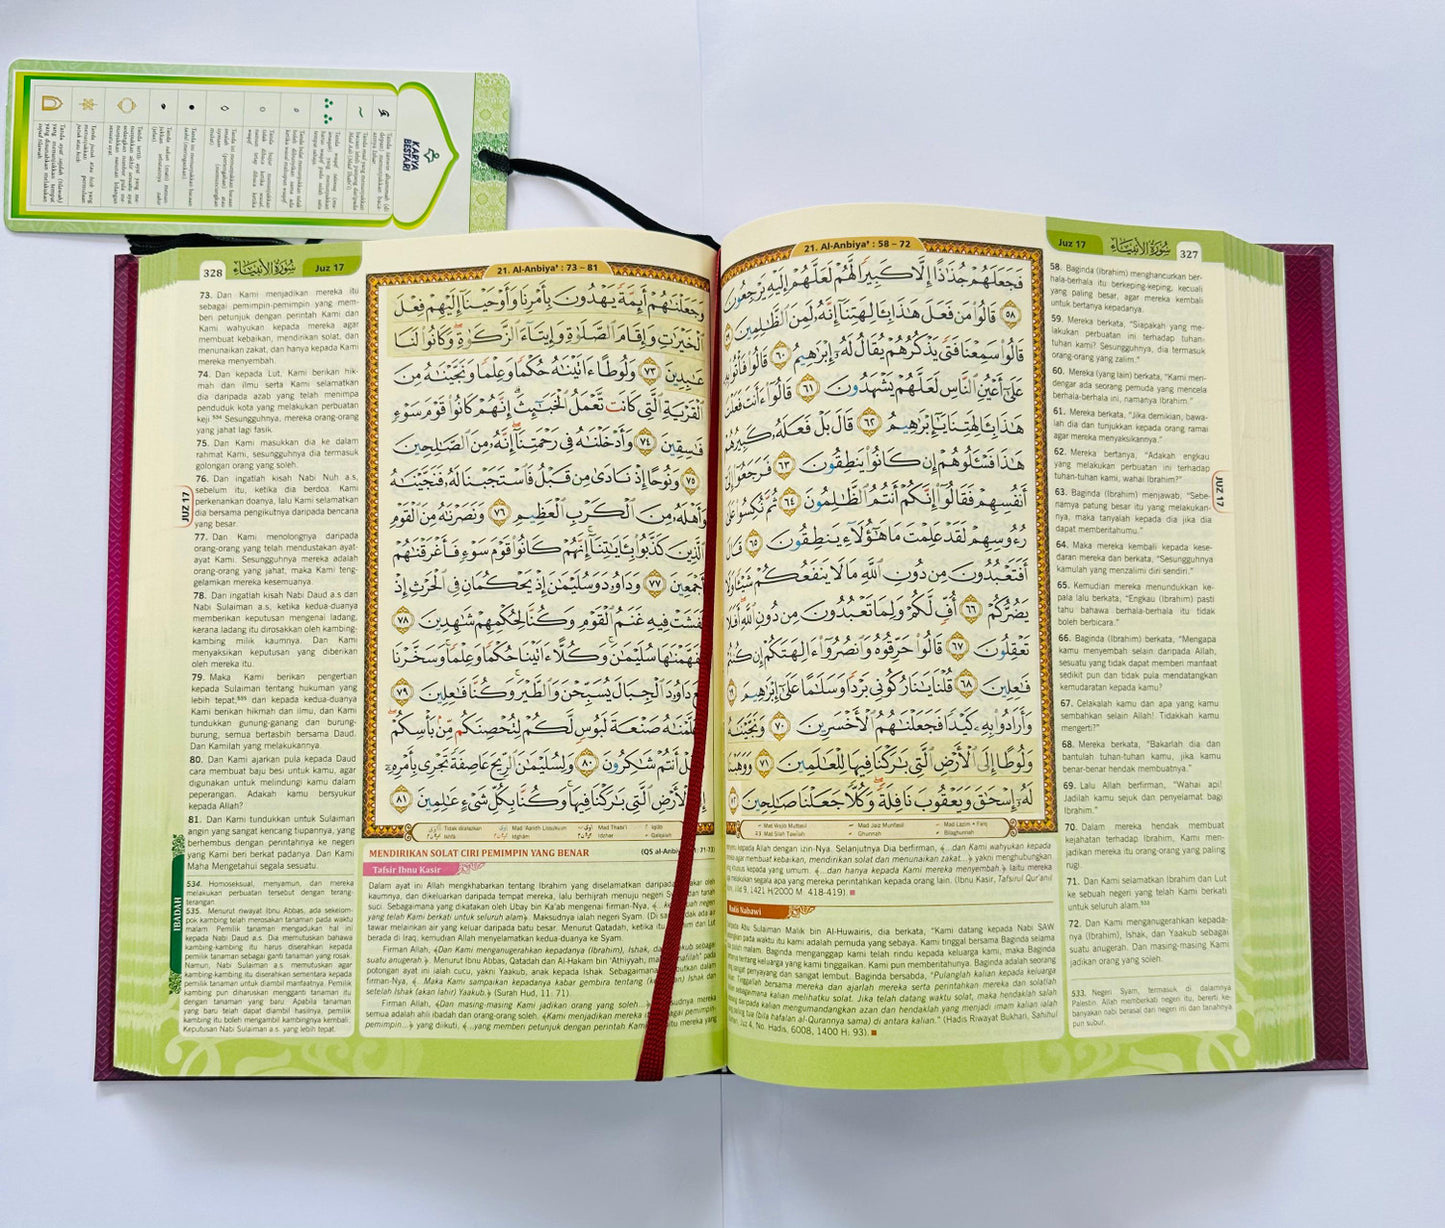 KARYA
BESTARI
21. Al-Anbiya' : 58 – 72
Juz 17
سُورَةُ الأَنْبِيَاءِ
327
فَجَعَلَهُمْ جُذَاذًا إِلَّا كَبِيرًا لَّهُمْ لَعَلَّهُمْ إِلَيْهِ يَرْجِعُونَ
٥٨ قَالُوا مَن فَعَلَ هَٰذَا بِـَٔالِهَتِنَآ إِنَّهُۥ لَمِنَ ٱلظَّٰلِمِينَ
قَالُوا سَمِعْنَا فَتًى يَذْكُرُهُمْ يُقَالُ لَهُۥٓ إِبْرَٰهِيمُ ٦٠ قَالُوا فَأْتُوا بِهِۦ
عَلَىٰٓ أَعْيُنِ ٱلنَّاسِ لَعَلَّهُمْ يَشْهَدُونَ ٦١ قَالُوٓا ءَأَنتَ فَعَلْتَ
هَٰذَا بِـَٔالِهَتِنَا يَٰٓإِبْرَٰهِيمُ ٦٢ قَالَ بَلْ فَعَلَهُۥ كَبِيرُهُمْ
هَٰذَا فَسْـَٔلُوهُمْ إِن كَانُوا يَنطِقُونَ ٦٣ فَرَجَعُوٓا إِلَىٰٓ
أَنفُسِهِمْ فَقَالُوٓا إِنَّكُمْ أَنتُمُ ٱلظَّٰلِمُونَ ٦٤ ثُمَّ نُكِسُوا عَلَىٰ
رُءُوسِهِمْ لَقَدْ عَلِمْتَ مَا هَٰٓؤُلَآءِ يَنطِقُونَ ٦٥ قَالَ
أَفَتَعْبُدُونَ مِن دُونِ ٱللَّهِ مَا لَا يَنفَعُكُمْ شَيْـًٔا وَلَا
يَضُرُّكُمْ ٦٦ أُفٍّ لَّكُمْ وَلِمَا تَعْبُدُونَ مِن دُونِ ٱللَّهِ أَفَلَا
تَعْقِلُونَ ٦٧ قَالُوا حَرِّقُوهُ وَٱنصُرُوٓا ءَالِهَتَكُمْ إِن كُنتُمْ
فَٰعِلِينَ ٦٨ قُلْنَا يَٰنَارُ كُونِى بَرْدًا وَسَلَٰمًا عَلَىٰٓ إِبْرَٰهِيمَ ٦٩
وَأَرَادُوا بِهِۦ كَيْدًا فَجَعَلْنَٰهُمُ ٱلْأَخْسَرِينَ ٧٠ وَنَجَّيْنَٰهُ
وَلُوطًا إِلَى ٱلْأَرْضِ ٱلَّتِى بَٰرَكْنَا فِيهَا لِلْعَٰلَمِينَ ٧١ وَوَهَبْنَا
لَهُۥٓ إِسْحَٰقَ وَيَعْقُوبَ نَافِلَةً وَكُلًّا جَعَلْنَا صَٰلِحِينَ ٧٢
Mad Wajib Muttasil
Mad Jaiz Munfasil
Mad Lazim
Farq
Mad Silah Tawilah
Ghunnah
Bilaghunnah
58. Baginda (Ibrahim) menghancurkan ber-
hala-berhala itu berkeping-keping, kecuali
yang paling besar, agar mereka kembali
untuk bertanya kepadanya.
59. Mereka berkata, "Siapakah yang me-
lakukan perbuatan ini terhadap tuhan-
tuhan kami? Sesungguhnya, dia termasuk
orang-orang yang zalim."
60. Mereka (yang lain) berkata, "Kami men-
dengar ada seorang pemuda yang mencela
berhala-berhala ini, namanya Ibrahim."
61. Mereka berkata, "Jika demikian, bawa-
lah dia dan tunjukkan kepada orang ramai
agar mereka menyaksikannya."
62. Mereka bertanya, "Adakah engkau
yang melakukan perbuatan ini terhadap
tuhan-tuhan kami, wahai Ibrahim?"
63. Baginda (Ibrahim) menjawab, "Sebe-
narnya patung besar itu yang melakukan-
nya, maka tanyalah kepada dia jika dia
dapat memberitahumu."
64. Maka mereka kembali kepada kese-
daran mereka dan berkata, "Sesungguhnya
kamulah yang menzalimi diri sendiri."
65. Kemudian mereka menundukkan ke-
pala lalu berkata, "Engkau (Ibrahim) pasti
tahu bahawa berhala-berhala itu tidak
boleh berbicara."
66. Baginda (Ibrahim) berkata, "Mengapa
kamu menyembah selain daripada Allah,
sesuatu yang tidak dapat memberi manfaat
sedikit pun dan tidak pula mendatangkan
kemudaratan kepada kamu?
67. Celakalah kamu dan apa yang kamu
sembahkan selain Allah! Tidakkah kamu
mengerti?"
68. Mereka berkata, "Bakarlah dia dan
bantulah tuhan-tuhan kamu, jika kamu
benar-benar hendak membuatnya."
69. Lalu Allah berfirman, "Wahai api!
Jadilah kamu sejuk dan penyelamat bagi
Ibrahim."
70. Dalam mereka hendak membuat
kejahatan terhadap Ibrahim, Kami men-
jadikan mereka itu orang-orang yang paling
rugi.
71. Dan Kami selamatkan Ibrahim dan Lut
ke sebuah negeri yang telah Kami berkati
untuk seluruh alam.533
72. Dan Kami menganugerahkan kepada-
nya (Ibrahim), Ishak, dan Yaakub sebagai
suatu anugerah. Dan masing-masing Kami
jadikan orang yang soleh.
533. Negeri Syam, termasuk di dalamnya
Palestin. Allah memberkati negeri itu, bererti ke-
banyakan nabi berasal dari negeri ini dan tanahnya
pun subur.
JUZ 17
kepada Allah dengan izin-Nya. Selanjutnya Dia berfirman, ...dan Kami wahyukan kepada
agar membuat kebaikan, mendirikan solat dan menunaikan zakat... yakni menghubungkan
khas kepada yang umum. ...dan hanya kepada Kami mereka menyembah. Iaitu mereka
melakukan segala apa yang mereka perintahkan kepada orang lain. (Ibnu Kasir, Tafsirul Qur'anil
Jld 9, 1421 H/2000 M. 418-419).
Hadis Nabawi
Abu Sulaiman Malik bin Al-Huwairis, dia berkata, "Kami datang kepada Nabi SAW
pada waktu itu kami adalah pemuda yang sebaya. Kami tinggal bersama Baginda selama
malam. Baginda menganggap kami telah rindu kepada keluarga kami,
tentang keluarga yang kami tinggalkan. Kami pun memberitahunya. Baginda adalah seorang
sangat penyayang dan sangat lembut. Baginda bersabda, "Pulanglah kalian kepada keluarga
Tinggallah bersama mereka dan ajarlah mereka serta perintahkan mereka dan solatlah
sebagaimana kalian melihatku solat. Jika telah datang waktu solat, maka hendaklah salah
daripada kalian mengumandangkan azan dan hendaklah yang menjadi imam kalian ialah
paling tua (bila hafalan al-Qurannya sama) di antara kalian." (Hadis Riwayat Bukhari, Sahihul
Juz 4, No. Hadis. 6008, 1400 H: 93).
328
سُورَةُ الأَنْبِيَاءِ
Juz 17
21. Al-Anbiya' : 73 – 81
وَجَعَلْنَٰهُمْ أَئِمَّةً يَهْدُونَ بِأَمْرِنَا وَأَوْحَيْنَآ إِلَيْهِمْ فِعْلَ
ٱلْخَيْرَٰتِ وَإِقَامَ ٱلصَّلَوٰةِ وَإِيتَآءَ ٱلزَّكَوٰةِ وَكَانُوا لَنَا
عَٰبِدِينَ ٧٣ وَلُوطًا ءَاتَيْنَٰهُ حُكْمًا وَعِلْمًا وَنَجَّيْنَٰهُ مِنَ
ٱلْقَرْيَةِ ٱلَّتِى كَانَت تَّعْمَلُ ٱلْخَبَٰٓئِثَ إِنَّهُمْ كَانُوا قَوْمَ سَوْءٍ
فَٰسِقِينَ ٧٤ وَأَدْخَلْنَٰهُ فِى رَحْمَتِنَآ إِنَّهُۥ مِنَ ٱلصَّٰلِحِينَ
٧٥ وَنُوحًا إِذْ نَادَىٰ مِن قَبْلُ فَٱسْتَجَبْنَا لَهُۥ فَنَجَّيْنَٰهُ
وَأَهْلَهُۥ مِنَ ٱلْكَرْبِ ٱلْعَظِيمِ ٧٦ وَنَصَرْنَٰهُ مِنَ ٱلْقَوْمِ
ٱلَّذِينَ كَذَّبُوا بِـَٔايَٰتِنَآ إِنَّهُمْ كَانُوا قَوْمَ سَوْءٍ فَأَغْرَقْنَٰهُمْ
أَجْمَعِينَ ٧٧ وَدَاوُۥدَ وَسُلَيْمَٰنَ إِذْ يَحْكُمَانِ فِى ٱلْحَرْثِ إِذْ
نَفَشَتْ فِيهِ غَنَمُ ٱلْقَوْمِ وَكُنَّا لِحُكْمِهِمْ شَٰهِدِينَ ٧٨
فَفَهَّمْنَٰهَا سُلَيْمَٰنَ وَكُلًّا ءَاتَيْنَا حُكْمًا وَعِلْمًا وَسَخَّرْنَا
مَعَ دَاوُۥدَ ٱلْجِبَالَ يُسَبِّحْنَ وَٱلطَّيْرَ وَكُنَّا فَٰعِلِينَ ٧٩
وَعَلَّمْنَٰهُ صَنْعَةَ لَبُوسٍ لَّكُمْ لِتُحْصِنَكُم مِّنۢ بَأْسِكُمْ
فَهَلْ أَنتُمْ شَٰكِرُونَ ٨٠ وَلِسُلَيْمَٰنَ ٱلرِّيحَ عَاصِفَةً تَجْرِى بِأَمْرِهِۦٓ
إِلَى ٱلْأَرْضِ ٱلَّتِى بَٰرَكْنَا فِيهَا وَكُنَّا بِكُلِّ شَىْءٍ عَٰلِمِينَ ٨١
Tidak dibacakan
Mad 'Aaridh Lissukuun
Mad Thabi'i
Iqlab
Ikhfa
Idgham
Idzhar
Qalqalah
73. Dan Kami menjadikan mereka itu
sebagai pemimpin-pemimpin yang mem-
beri petunjuk dengan perintah Kami dan
Kami wahyukan kepada mereka agar
membuat kebaikan, mendirikan solat, dan
menunaikan zakat, dan hanya kepada Kami
mereka menyembah.
74. Dan kepada Lut, Kami berikan hik-
mah dan ilmu serta Kami selamatkan
dia daripada azab yang telah menimpa
penduduk kota yang melakukan perbuatan
keji.534 Sesungguhnya, mereka orang-orang
yang jahat lagi fasik.
75. Dan Kami masukkan dia ke dalam
rahmat Kami, sesungguhnya dia termasuk
golongan orang yang soleh.
76. Dan ingatlah kisah Nabi Nuh a.s,
sebelum itu, ketika dia berdoa. Kami
perkenankan doanya, lalu Kami selamatkan
dia bersama pengikutnya daripada bencana
yang besar.
77. Dan Kami menolongnya daripada
orang-orang yang telah mendustakan ayat-
ayat Kami. Sesungguhnya mereka adalah
orang-orang yang jahat, maka Kami teng-
gelamkan mereka kesemuanya.
78. Dan ingatlah kisah Nabi Daud a.s dan
Nabi Sulaiman a.s, ketika kedua-duanya
memberikan keputusan mengenai ladang,
kerana ladang itu dirosakkan oleh kambing-
kambing milik kaumnya. Dan Kami
menyaksikan keputusan yang diberikan
oleh mereka itu.
79. Maka Kami berikan pengertian
kepada Sulaiman tentang hukuman yang
lebih tepat,535 dan kepada kedua-duanya
Kami berikan hikmah dan ilmu, dan Kami
tundukkan gunung-ganang dan burung-
burung, semua bertasbih bersama Daud.
Dan Kamilah yang melakukannya.
80. Dan Kami ajarkan pula kepada Daud
cara membuat baju besi untuk kamu, agar
digunakan untuk melindungi kamu dalam
peperangan. Adakah kamu bersyukur
kepada Allah?
81. Dan Kami tundukkan untuk Sulaiman
angin yang sangat kencang tiupannya, yang
berhembus dengan perintahnya ke negeri
yang Kami beri berkat padanya. Dan Kami
Maha Mengetahui segala sesuatu.
534. Homoseksual, menyamun, dan mereka
melakukan perbuatan tersebut dengan terang-
terangan.
535. Menurut riwayat Ibnu Abbas, ada sekelom-
pok kambing telah merosakan tanaman pada waktu
malam. Pemilik tanaman mengadukan hal ini
kepada Nabi Daud a.s. Dia memutuskan bahawa
kambing-kambing itu harus diserahkan kepada
pemilik tanaman sebagai ganti tanaman yang rosak.
Namun, Nabi Sulaiman a.s memutuskan agar
kambing-kambing itu diserahkan sementara kepada
pemilik tanaman untuk diambil manfaatnya. Pemilik
kambing pun diharuskan mengganti tanaman itu
dengan tanaman yang baru. Apabila tanaman
yang baru telah dapat diambil hasilnya, pemilik
kambing itu boleh mengambil kambingnya kembali.
Keputusan Nabi Sulaiman a.s. yang lebih tepat.
JUZ 17
IBADAH
MENDIRIKAN SOLAT CIRI PEMIMPIN YANG BENAR
Tafsir Ibnu Kasir
Dalam ayat ini Allah mengkhabarkan tentang Ibrahim yang diselamatkan daripada oleh
kaumnya, dan dikeluarkan daripada tempat mereka, lalu berhijrah menuju negeri Syam dan tanah
suci. Sebagaimana yang dikatakan oleh Ubay bin Ka'ab mengenai firman-Nya, negeri
yang telah Kami berkati untuk seluruh alam. Maksudnya ialah negeri Syam. (Di sana) tidak ada air
tawar melainkan air yang keluar daripada batu besar. Menurut Qatadah, ketika itu dan Lut
berada di Iraq, kemudian Allah menyelamatkan kedua-duanya ke Syam.
Firman Allah, Dan Kami menganugerahkan kepadanya (Ibrahim), Ishak, dan Yaakub sebagai
suatu anugerah. Menurut Ibnu Abbas, Qatadah dan Al-Hakam bin 'Athiyyah, pada
potongan ayat ini ialah cucu, yakni Yaakub, anak kepada Ishak. Sebagaimana dalam
firman-Nya, ...Maka Kami sampaikan kepadanya kabar gembira tentang Ishak dan
setelah Ishak (akan lahir) Yaakub. (Surah Hud, 11. 71).
Firman Allah, Dan masing-masing Kami jadikan orang yang soleh... mereka
semua adalah ahli ibadah dan orang-orang soleh. Kami menjadikan mereka itu sebagai pemimpin-
pemimpin... yang diikuti, ...yang memberi petunjuk dengan perintah Kami